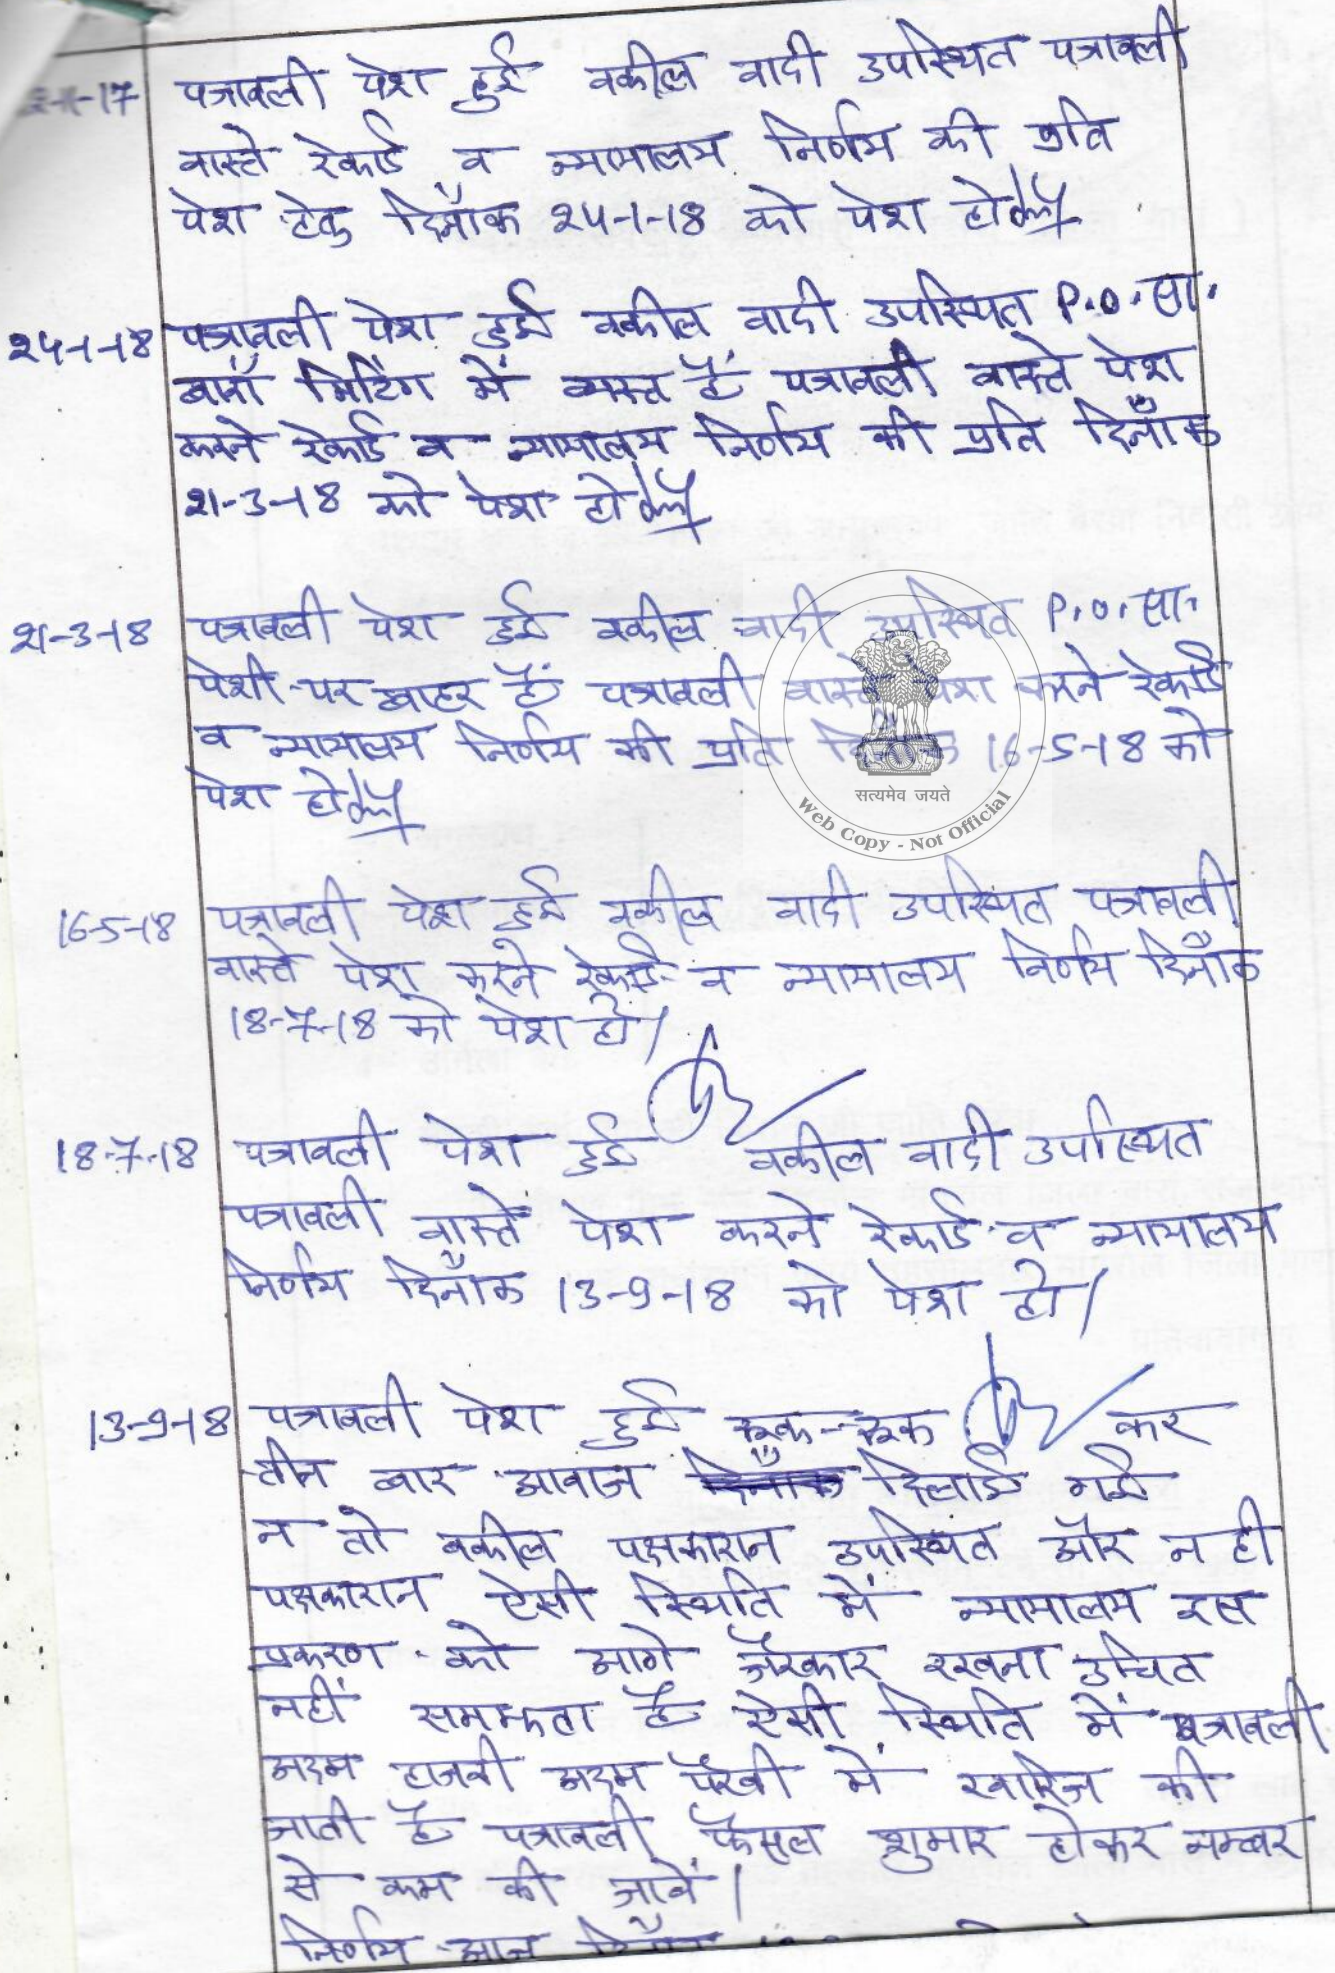 -11-17 पत्रावली पेश हुई वकील वादी उपस्थित पत्रावली
वास्ते रेकार्ड व न्यायालय निर्णय की प्रति
पेश हेतु दिनाँक 24-1-18 को पेश हो
24-1-18 पत्रावली पेश हुई वकील वादी उपस्थित P.O. सा.
मिटिंग में व्यस्त हैं पत्रावली वास्ते पेश
करने रेकार्ड व न्यायालय निर्णय की प्रति दिनाँक
21-3-18 को पेश हो
21-3-18 पत्रावली पेश हुई वकील वादी उपस्थित P.O. सा.
पेशी पर बाहर हैं पत्रावली वास्ते पेश करने रेकार्ड
व न्यायालय निर्णय की प्रति दिनाँक 16-5-18 को
पेश हो
सत्यमेव जयते
Web Copy - Not Official
16-5-18 पत्रावली पेश हुई वकील वादी उपस्थित पत्रावली
वास्ते पेश करने रेकार्ड व न्यायालय निर्णय दिनाँक
18-7-18 को पेश हो।
18-7-18 पत्रावली पेश हुई वकील वादी उपस्थित
पत्रावली वास्ते पेश करने रेकार्ड व न्यायालय
निर्णय दिनाँक 13-9-18 को पेश हो।
13-9-18 पत्रावली पेश हुई रूक-रूक कर
तीन बार आवाज दिनाँक दिलाई गई
न तो वकील पक्षकारान उपस्थित और न ही
पक्षकारान ऐसी स्थिति में न्यायालय इस
प्रकरण को आगे जैरकार रखना उचित
नहीं समझता है ऐसी स्थिति में पत्रावली
अदम हाजरी अदम पैरवी में खारिज की
जाती है पत्रावली फैसल शुमार होकर नम्बर
से कम की जावें।
निर्णय आज दिनाँक